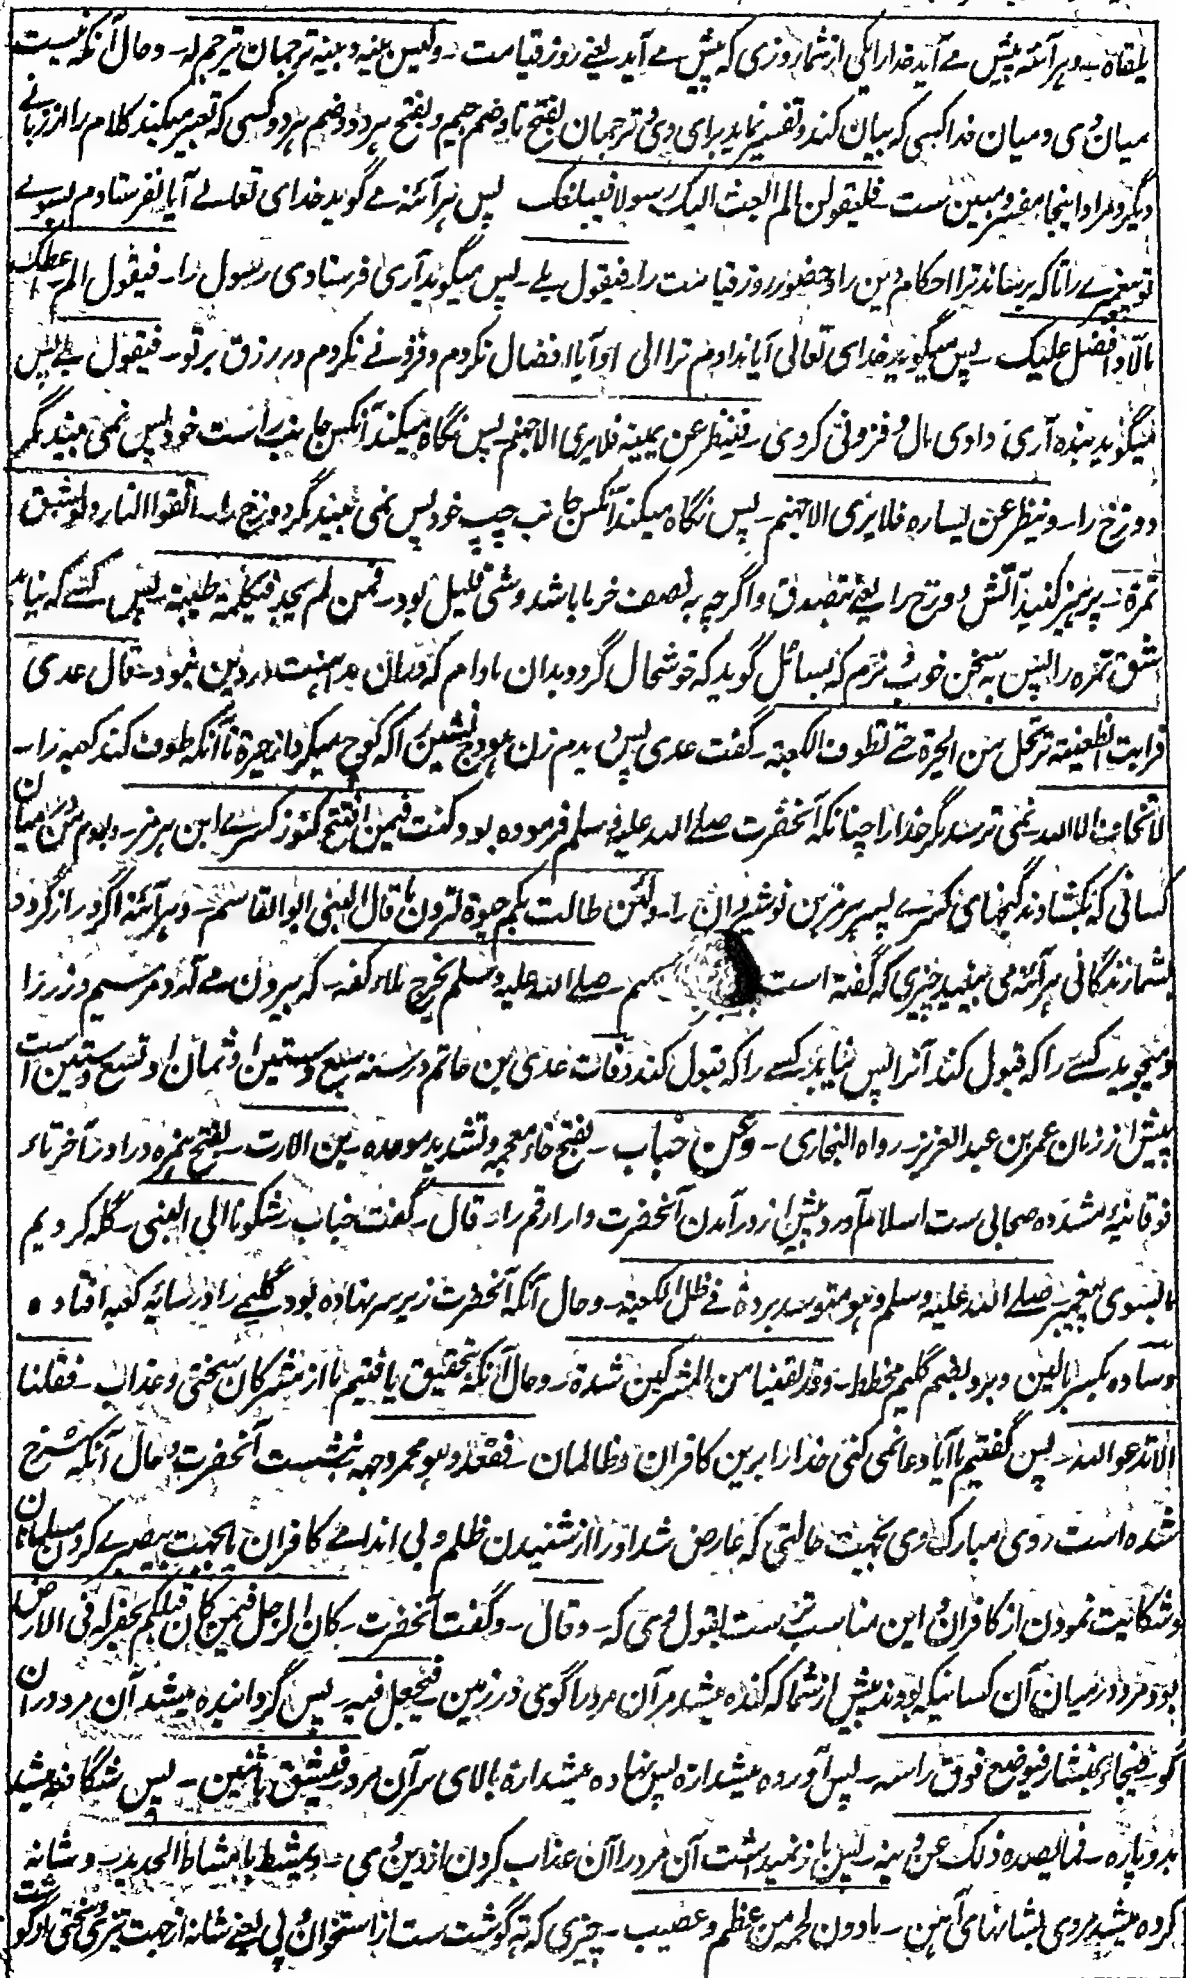 یلقاه ـ و هر آئنه پیش می آید خدا را یکی از شما روزی که پیش می آید یعنی روز قیامت ـ و لیس بینه و بینه ترجمان یترجم له ـ و حال آنکه نیست
میان وی و میان خدا کسی که بیان کند و تفسیر نماید برای وی و ترجمان بفتح تا و ضم جیم و بفتح هر دو و ضم هر دو کسی که تعبیر میکند کلام را از زبانے
دیگر و مراد اینجا مفسر و مبین ست ـ فلیقولن الم ابعث الیک رسولا فیبلغک پس هر آئنه می گوید خدای تعالے آیا نفرستادم بسوے
تو پیغمبرے را تا که برساند ترا احکام دین را و حضور روز قیامت را ـ فیقول بلے ـ پس میگوید آری فرستادی رسول را ـ فیقول الم اعطک
مالا و افضل علیک ـ پس میگوید خدای تعالی آیا ندادم ترا مالی و آیا افضال نکردم و فزونے نکردم در رزق بر تو ـ فیقول بلے پس
میگوید بنده آری دادی مال و فزونی کردی ـ فینظر عن یمینه فلا یری الا جهنم ـ پس نگاه میکند آنکس جانب راست خود پس نمی بیند مگر
دوزخ را ـ و ینظر عن یساره فلا یری الا جهنم ـ پس نگاه میکند آنکس جانب چپ خود پس نمی بیند مگر دوزخ را ـ اتقوا النار ولو بشق
تمرة ـ پرهیز کنید آتش دوزخ را یعنی بتصدق و اگرچه به نصف خرما باشد و شی قلیل بود ـ فمن لم یجد فبکلمة طیبة ـ پس کسے که نیابد
شق تمره را پس به سخن خوب و نرم که بسائل گوید که خوشحال گردد بدان مادام که دران مداهنت در دین نبود ـ قال عدی
فرایت الظعینة ترتحل من الحیرة حتے تطوف الکعبة ـ گفت عدی پس دیدم زن هودج نشین را که کوچ میکرد از حیره تا آنکه طوف کند کعبه را ـ
لا تخاف الا الله نمی ترسد مگر خدا را چنانکه آنحضرت صلے الله علیه و سلم فرموده بود و کنت فیمن افتتح کنوز کسرے ابن هرمز ـ و بودم من میان
کسانی که بکشادند گنجهای کسرے پسر هرمز بن نوشیروان را ـ و لئن طالت بکم حیوة لترون ما قال النبی ابوالقاسم ـ و هر آئنه اگر دراز گردد
بشما زندگانی هر آئنه می بینید چیزی که گفته است صلے الله علیه و سلم یخرج ملاء کفه ـ که بیرون می آرد مرد سیم و زر را
و میجوید کسے را که قبول کند آنرا پس نیابد کسے را که قبول کند وفات عدی بن حاتم در سنه سبع و ستین او ثمان او تسع و ستین است
پیش از زمان عمر بن عبد العزیز ـ رواه البخاری ـ و عن خباب ـ بفتح خاء معجمه و تشدید موحده ـ بن الارت ـ بفتح همزه و را و در آخر تاء
فوقانیه مشدده صحابی ست اسلام آورد پیش از در آمدن آنحضرت دار ارقم را ـ قال ـ گفت خباب ـ شکونا الی النبی ـ گله کردیم
ما بسوی پیغمبر ـ صلے الله علیه و سلم و هو متوسد بردة فے ظل الکعبة ـ و حال آنکه آنحضرت زیر سر نهاده بود گلیمے را در سایه کعبه افتاده
وساده بکسر بالین و برد بضم گلیم مخطط ـ و قد لقینا من المشرکین شدة ـ و حال آنکه بتحقیق یافتیم ما از مشرکان سختی و عذاب ـ فقلنا
الا تدعو الله ـ پس گفتیم ما آیا دعا نمی کنی خدا را برین کافران و ظالمان ـ فقعد و هو محمر وجهه بنشست آنحضرت و حال آنکه سرخ
شده است روی مبارک وی بجهت حالتی که عارض شد او را از شنیدن ظلم و بی اندامے کافران یا بجهت بیصبرے کردن مسلمانان
و شکایت نمودن از کافران و این مناسب تر ست بقول وی که ـ و قال ـ و گفت آنحضرت ـ کان الرجل فیمن کان قبلکم یحفر له فی الارض
بود مرد در میان آن کسانیکه بودند پیش از شما که کنده میشد مر آن مرد را گوی در زمین ـ فیجعل فیه ـ پس گردانیده میشد آن مرد در آن
گو ـ فیجاء بمنشار فیوضع فوق راسه ـ پس آورده میشد اره پس نهاده میشد اره بالای سر آن مرد ـ فیشق باثنین ـ پس شگافته میشد
بدو پاره ـ فما یصده ذلک عن دینه ـ پس باز نمیداشت آن مرد را آن عذاب کردن از دین وی ـ و یمشط بامشاط الحدید ـ و شانه
کرده میشد مردی بشانهای آهن ـ مادون لحمه من عظم و عصب ـ چیزی که ته گوشت ست از استخوان و پی یعنی شانه از جهت تیزی و سختی او گوشت